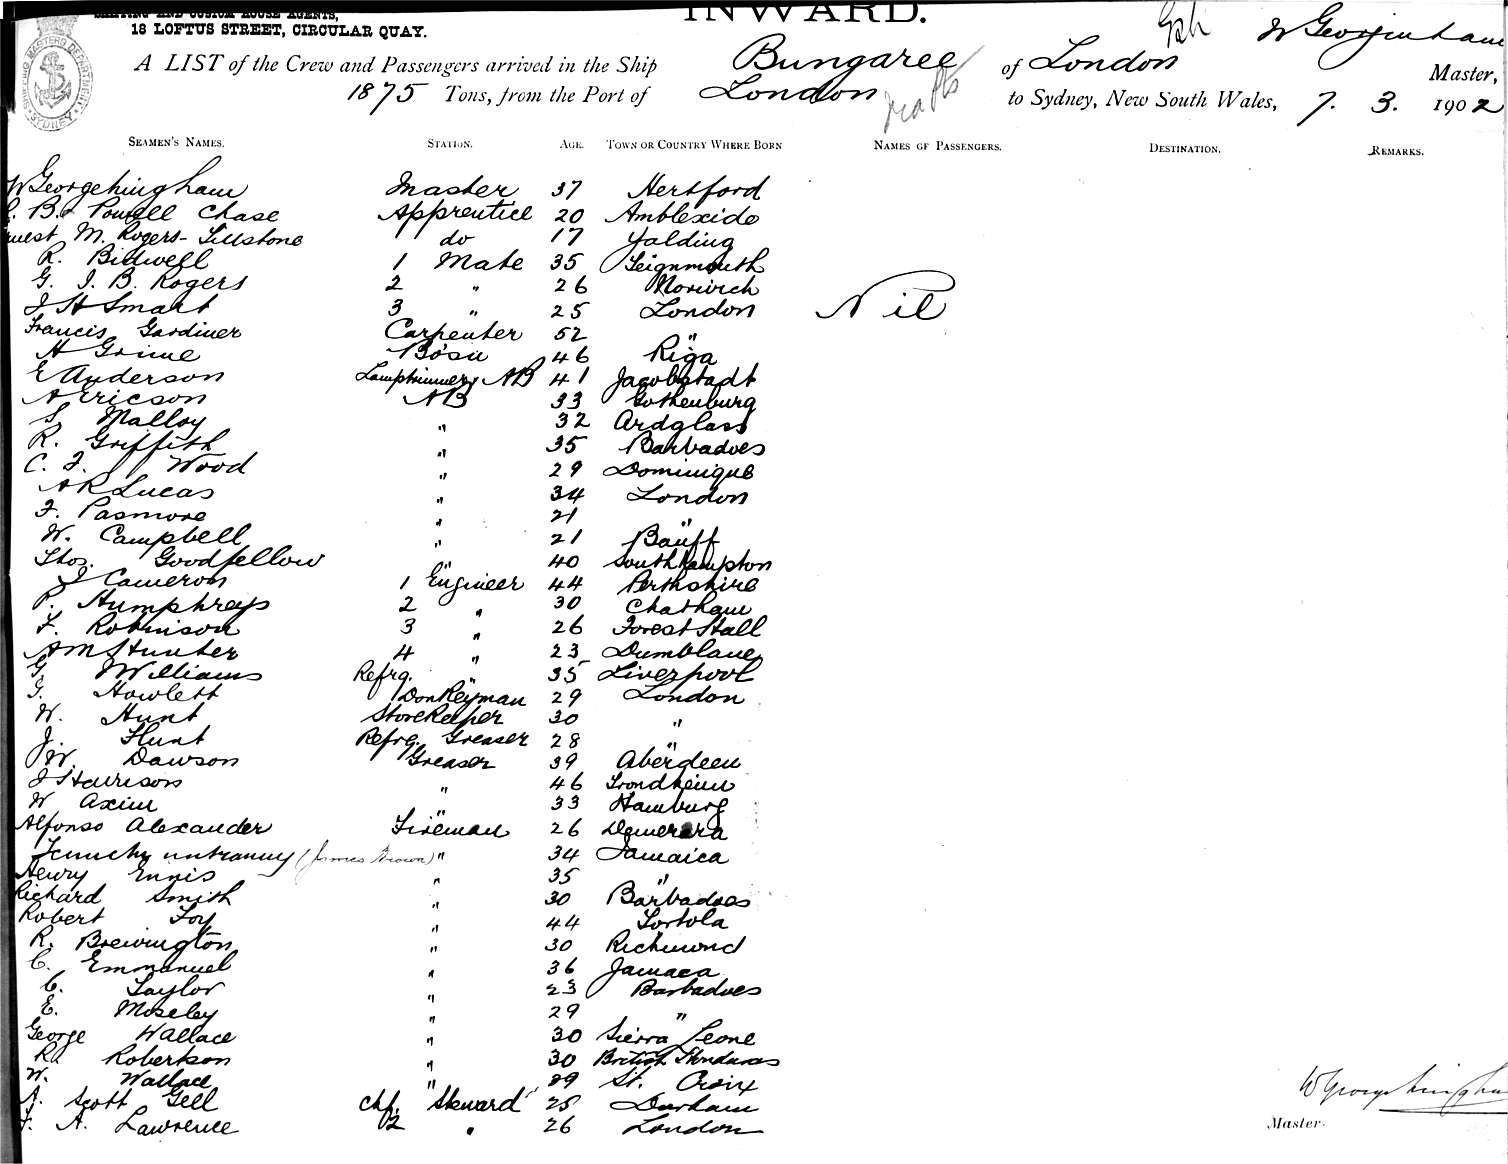 SHIPPING AND CUSTOM HOUSE AGENTS,
18 LOFTUS STREET, CIRCULAR QUAY.
INWARD.
A LIST of the Crew and Passengers arrived in the Ship Bungaree of London W Georgehingham Master,
1875 Tons, from the Port of London to Sydney, New South Wales, 7. 3. 1902
SEAMEN'S NAMES. STATION. AGE. TOWN OR COUNTRY WHERE BORN NAMES OF PASSENGERS. DESTINATION. REMARKS.
W Georgehingham Master 37 Hertford
B. Powell Chase Apprentice 20 Ambleside
M. Rogers-Tillstone do 17 Yalding
R. Bidwell 1 Mate 35 Teignmouth
G. I. B. Rogers 2 " 26 Norwich
J H Smart 3 " 25 London Nil
Francis Gardiner Carpenter 52 "
H Grime Bosu 46 Riga
E Anderson Lamptrimmer AB 41 Jacobstadt
A Ericson AB 33 Gothenburg
S. Malloy " 32 Ardglass
R. Griffith " 35 Barbadoes
C. F. Wood " 29 Dominique
A R Lucas " 34 London
F. Pasmore " 21 "
W. Campbell " 21 Banff
Thos. Goodfellow " 40 Southhampton
J Cameron 1 Engineer 44 Perthshire
P. Humphreys 2 " 30 Chatham
F. Robinson 3 " 26 Forest Hall
A M Hunter 4 " 23 Dumblane
G. Williams Refrg. " 35 Liverpool
G. Howlett Donkeyman 29 London
W. Hunt Storekeeper 30 "
J. Hunt Refrg. Greaser 28 "
W. Dawson Greaser 39 Aberdeen
J Harrison " 46 Trondheim
W Axim " 33 Hamburg
Alfonso Alexander Fireman 26 Demerara
(James Brown) " 34 Jamaica
Henry Ennis " 35 "
Richard Smith " 30 Barbadoes
Robert Foy " 44 Tortola
R. Brewington " 30 Richmond
C. Emmanuel " 36 Jamaca
C. Taylor " 23 Barbadoes
E. Moseley " 29 "
George Wallace " 30 Sierra Leone
R. Robertson " 30 British Honduras
W. Wallace " 29 St. Croix
A. Scott Gell chf. Steward 25 Durham
F. A. Lawrence 2 " 26 London
W Georgehingham
Master.